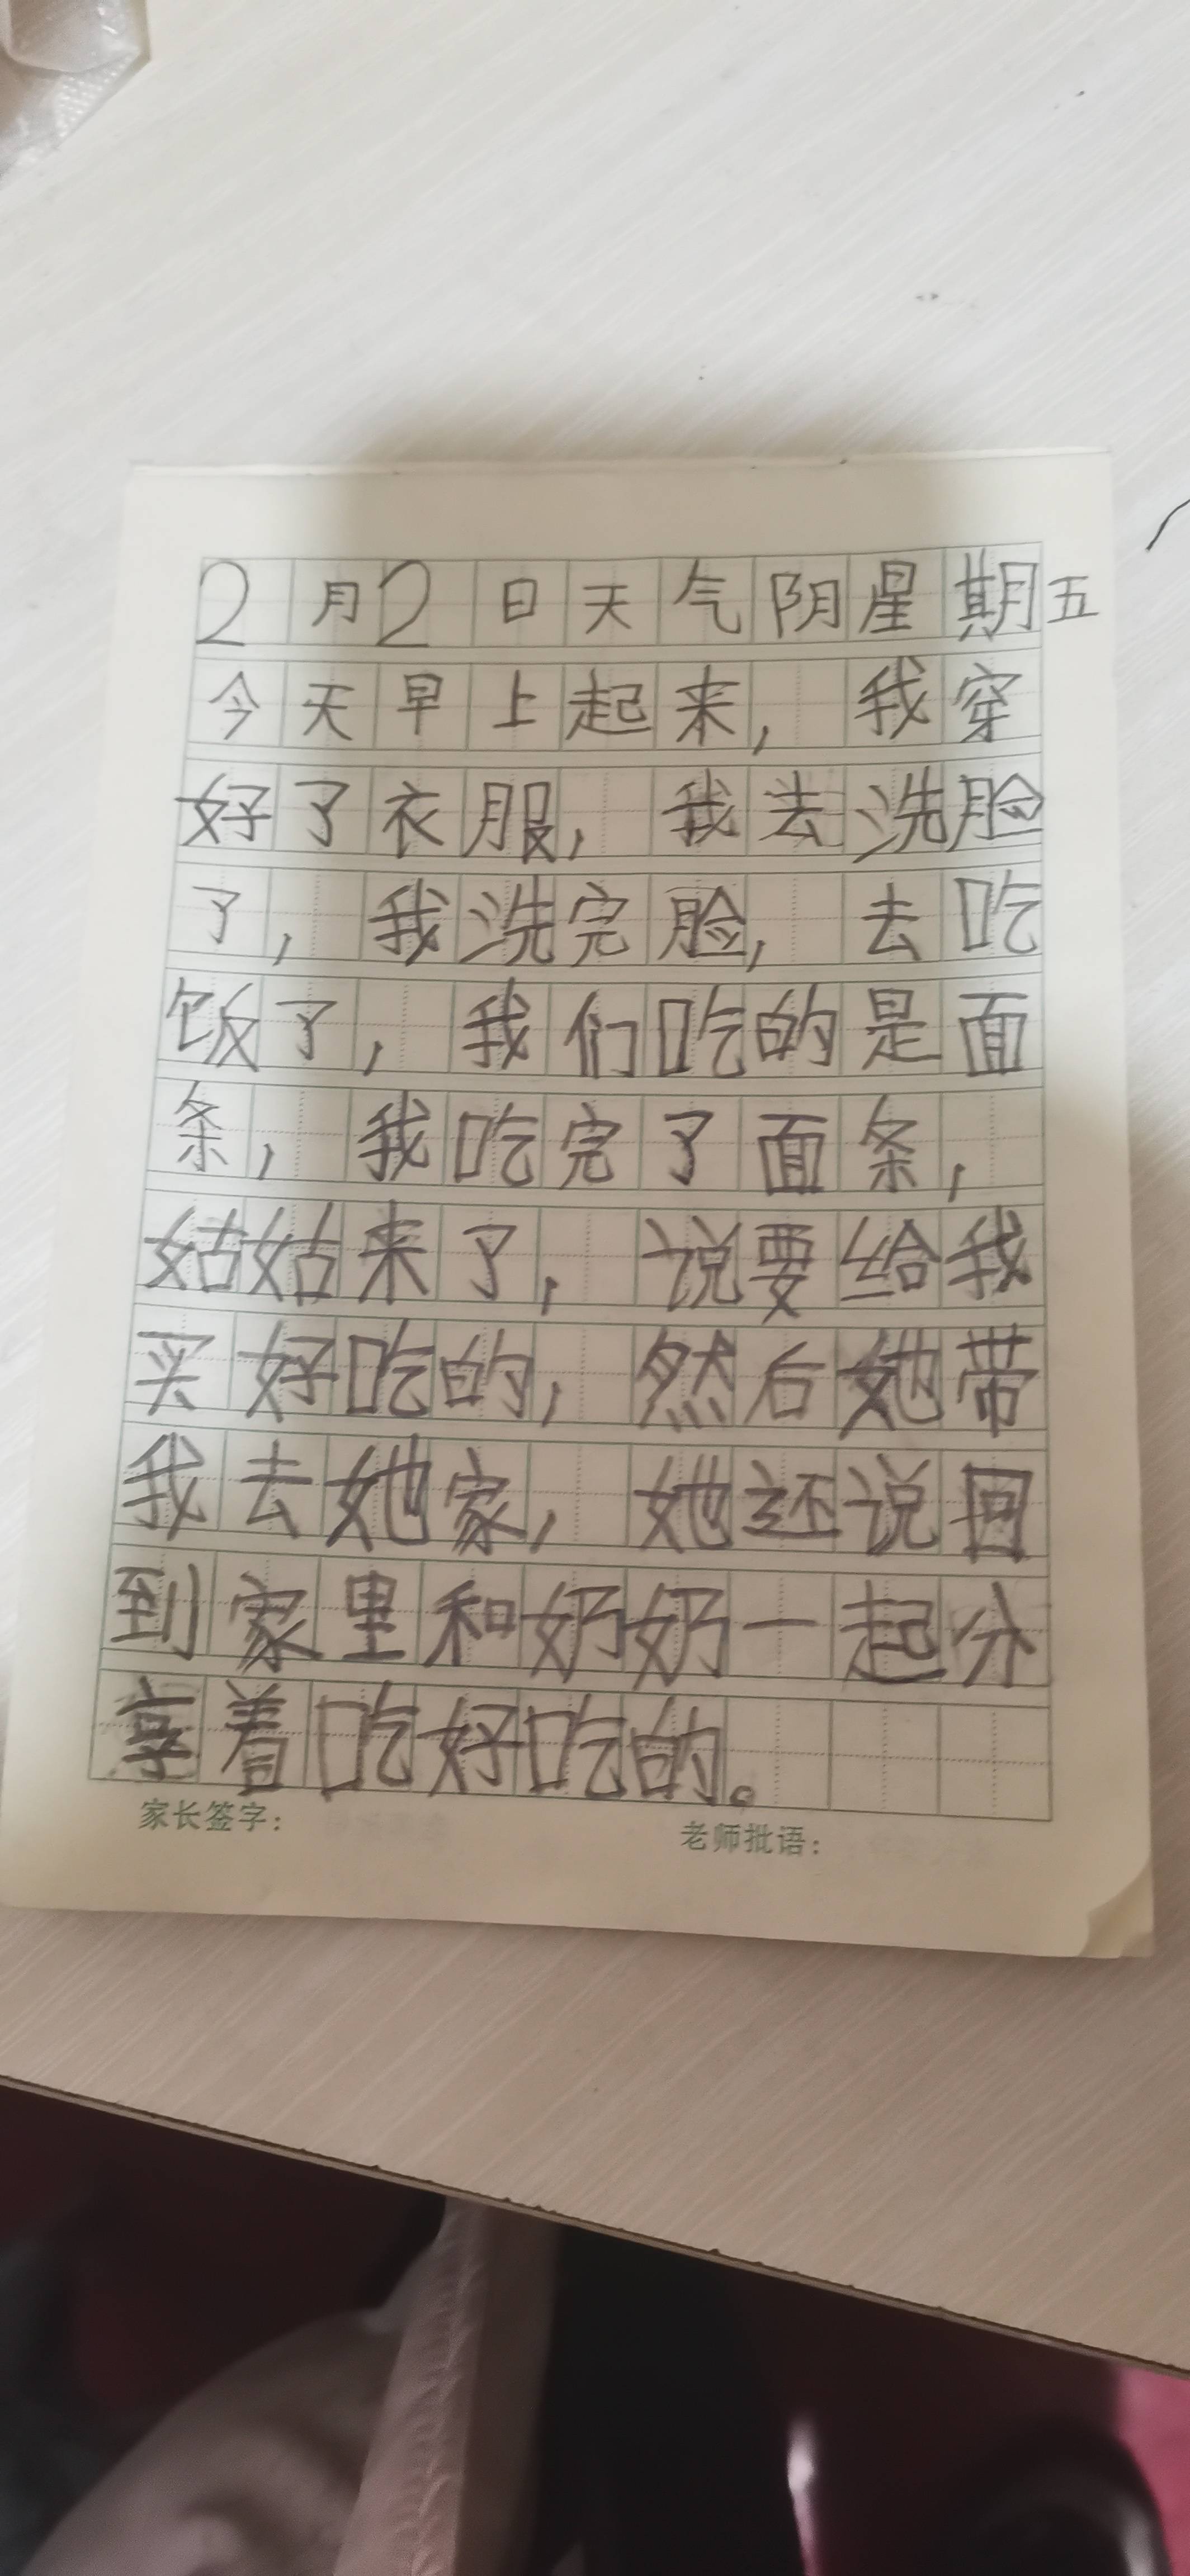 2月2日天气阴星期五
今天早上起来，我穿
好了衣服，我去洗脸
了，我洗完脸，去吃
饭了，我们吃的是面
条，我吃完了面条，
姑姑来了，说要给我
买好吃的，然后她带
我去她家，她还说回
到家里和奶奶一起分
享着吃好吃的。
家长签字： 老师批语：